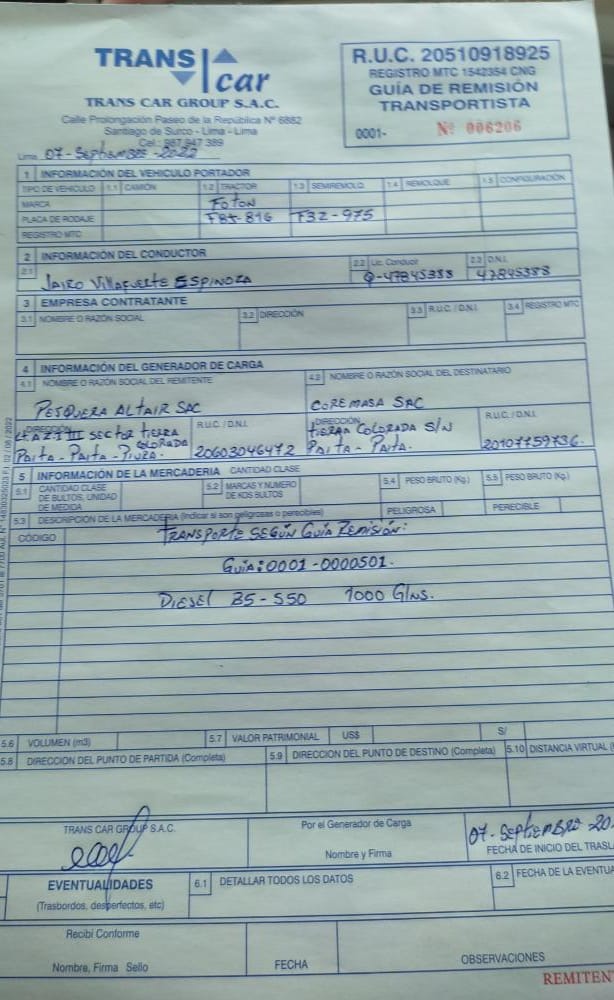 TRANS car
TRANS CAR GROUP S.A.C.
Calle Prolongación Paseo de la República Nº 6882
Santiago de Surco - Lima - Lima
Cel.: 987 847 389
R.U.C. 20510918925
REGISTRO MTC 1542354 CNG
GUÍA DE REMISIÓN
TRANSPORTISTA
0001- Nº 006206
Lima, 07-Septiembre-2022
1 INFORMACIÓN DEL VEHICULO PORTADOR
TIPO DE VEHICULO 1.1 CAMIÓN 1.2 TRACTOR 1.3 SEMIREMOLQ. 1.4 REMOLQUE 1.5 CONFIGURACIÓN
MARCA FOTON
PLACA DE RODAJE F8J-816 F3Z-975
REGISTRO MTC
2 INFORMACIÓN DEL CONDUCTOR
2.1 JAIRO VILLAFUERTE ESPINOZA 2.2 Lic. Conducir Q-47845388 2.3 D.N.I. 47845388
3 EMPRESA CONTRATANTE
3.1 NOMBRE O RAZÓN SOCIAL 3.2 DIRECCIÓN 3.3 R.U.C. / D.N.I. 3.4 REGISTRO MTC
4 INFORMACIÓN DEL GENERADOR DE CARGA
4.1 NOMBRE O RAZÓN SOCIAL DEL REMITENTE 4.2 NOMBRE O RAZÓN SOCIAL DEL DESTINATARIO
PESQUERA ALTAIR SAC COREMASA SAC
DIRECCIÓN R.U.C. / D.N.I. DIRECCIÓN R.U.C. / D.N.I.
III SECTOR TIERRA COLORADA TIERRA COLORADA S/N
PAITA - PAITA - PIURA. 20603046472 PAITA - PAITA. 20107759736.
5 INFORMACIÓN DE LA MERCADERIA CANTIDAD CLASE
5.1 CANTIDAD CLASE DE BULTOS, UNIDAD DE MEDIDA 5.2 MARCAS Y NUMERO DE KOS BULTOS 5.4 PESO BRUTO (Kg.) 5.5 PESO BRUTO (Kg.)
5.3 DESCRIPCIÓN DE LA MERCADERIA (Indicar si son peligrosas o perecibles) PELIGROSA PERECIBLE
CÓDIGO TRANSPORTE SEGÚN GUÍA REMISIÓN:
GUÍA: 0001-0000501.
DIESEL B5-S50 1000 GLNS.
5.6 VOLUMEN (m3) 5.7 VALOR PATRIMONIAL US$ S/
5.8 DIRECCION DEL PUNTO DE PARTIDA (Completa) 5.9 DIRECCION DEL PUNTO DE DESTINO (Completa) 5.10 DISTANCIA VIRTUAL
TRANS CAR GROUP S.A.C. Por el Generador de Carga 07-SEPTIEMBRE 20
Nombre y Firma FECHA DE INICIO DEL TRASLA
EVENTUALIDADES 6.1 DETALLAR TODOS LOS DATOS 6.2 FECHA DE LA EVENTUA
(Trasbordos, desperfectos, etc)
Recibí Conforme
Nombre, Firma Sello FECHA OBSERVACIONES
REMITEN